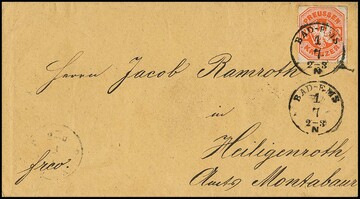 PREUSSEN
KREUZER
BAD-EMS
1
7
2-3
N
Herrn Jacob Ramroth
BAD-EMS
1
7
2-3
N
in
Heiligenroth
frco.
Amts Montabaur